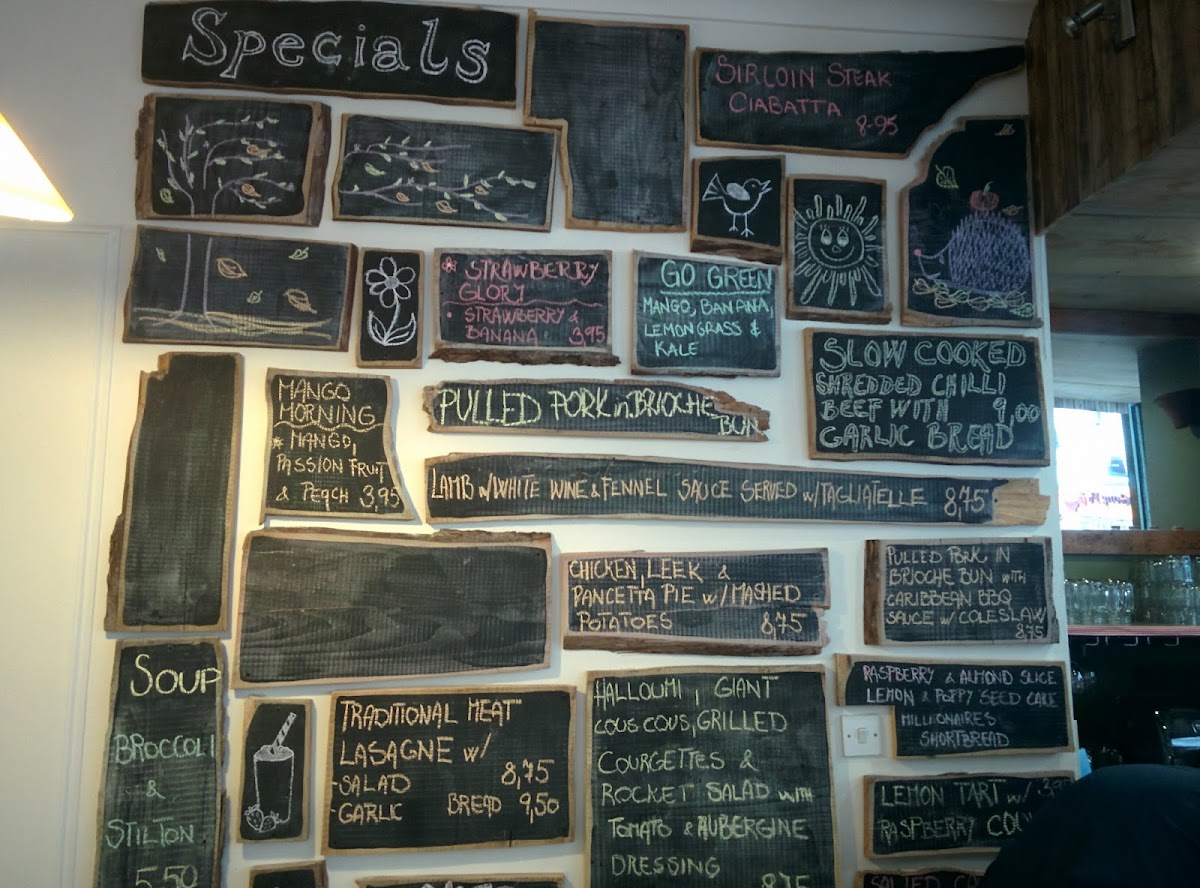 Specials
SIRLOIN STEAK
CIABATTA
8-95
* STRAWBERRY
GLORY
• STRAWBERRY &
BANANA 3,95
GO GREEN
MANGO, BANANA,
LEMONGRASS &
KALE
SLOW COOKED
SHREDDED CHILLI
BEEF WITH 9,00
GARLIC BREAD
MANGO
MORNING
* MANGO,
PASSION FRUIT
& PEACH 3,95
PULLED PORK in BRIOCHE
BUN
LAMB w/WHITE WINE & FENNEL SAUCE SERVED w/TAGLIATELLE 8,75
CHICKEN, LEEK &
PANCETTA PIE w/MASHED
POTATOES 8,75
PULLED PORK IN
BRIOCHE BUN WITH
CARIBBEAN BBQ
SAUCE w/ COLESLAW
8,75
SOUP
BROCCOLI
&
STILTON
5.50
TRADITIONAL MEAT
LASAGNE w/
-SALAD 8,75
-GARLIC BREAD 9,50
HALLOUMI, GIANT
COUS COUS, GRILLED
COURGETTES &
ROCKET SALAD WITH
TOMATO & AUBERGINE
DRESSING
8,75
RASPBERRY & ALMOND SLICE
LEMON & POPPY SEED CAKE
MILLIONAIRES
SHORTBREAD
LEMON TART w/
RASPBERRY
SALTED